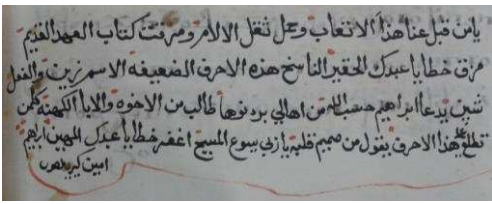 يامن قبل عنا هذا الاتعاب وحمل ثقل الالام ومزقت كتاب العهد القديم
مزق خطايا عبدك الحقير الناسخ هذه الاحرف الضعيفه الاسم زين والفعل
شين يدعا ابراهيم من اهالي بردنوها طالب من الاخوه والابا الكهنه كلمن
تطلع علي هذا الاحرف يقول من صميم قلبه ياربي يسوع المسيح اغفر خطايا عبدك المهين ابرهيم
امين